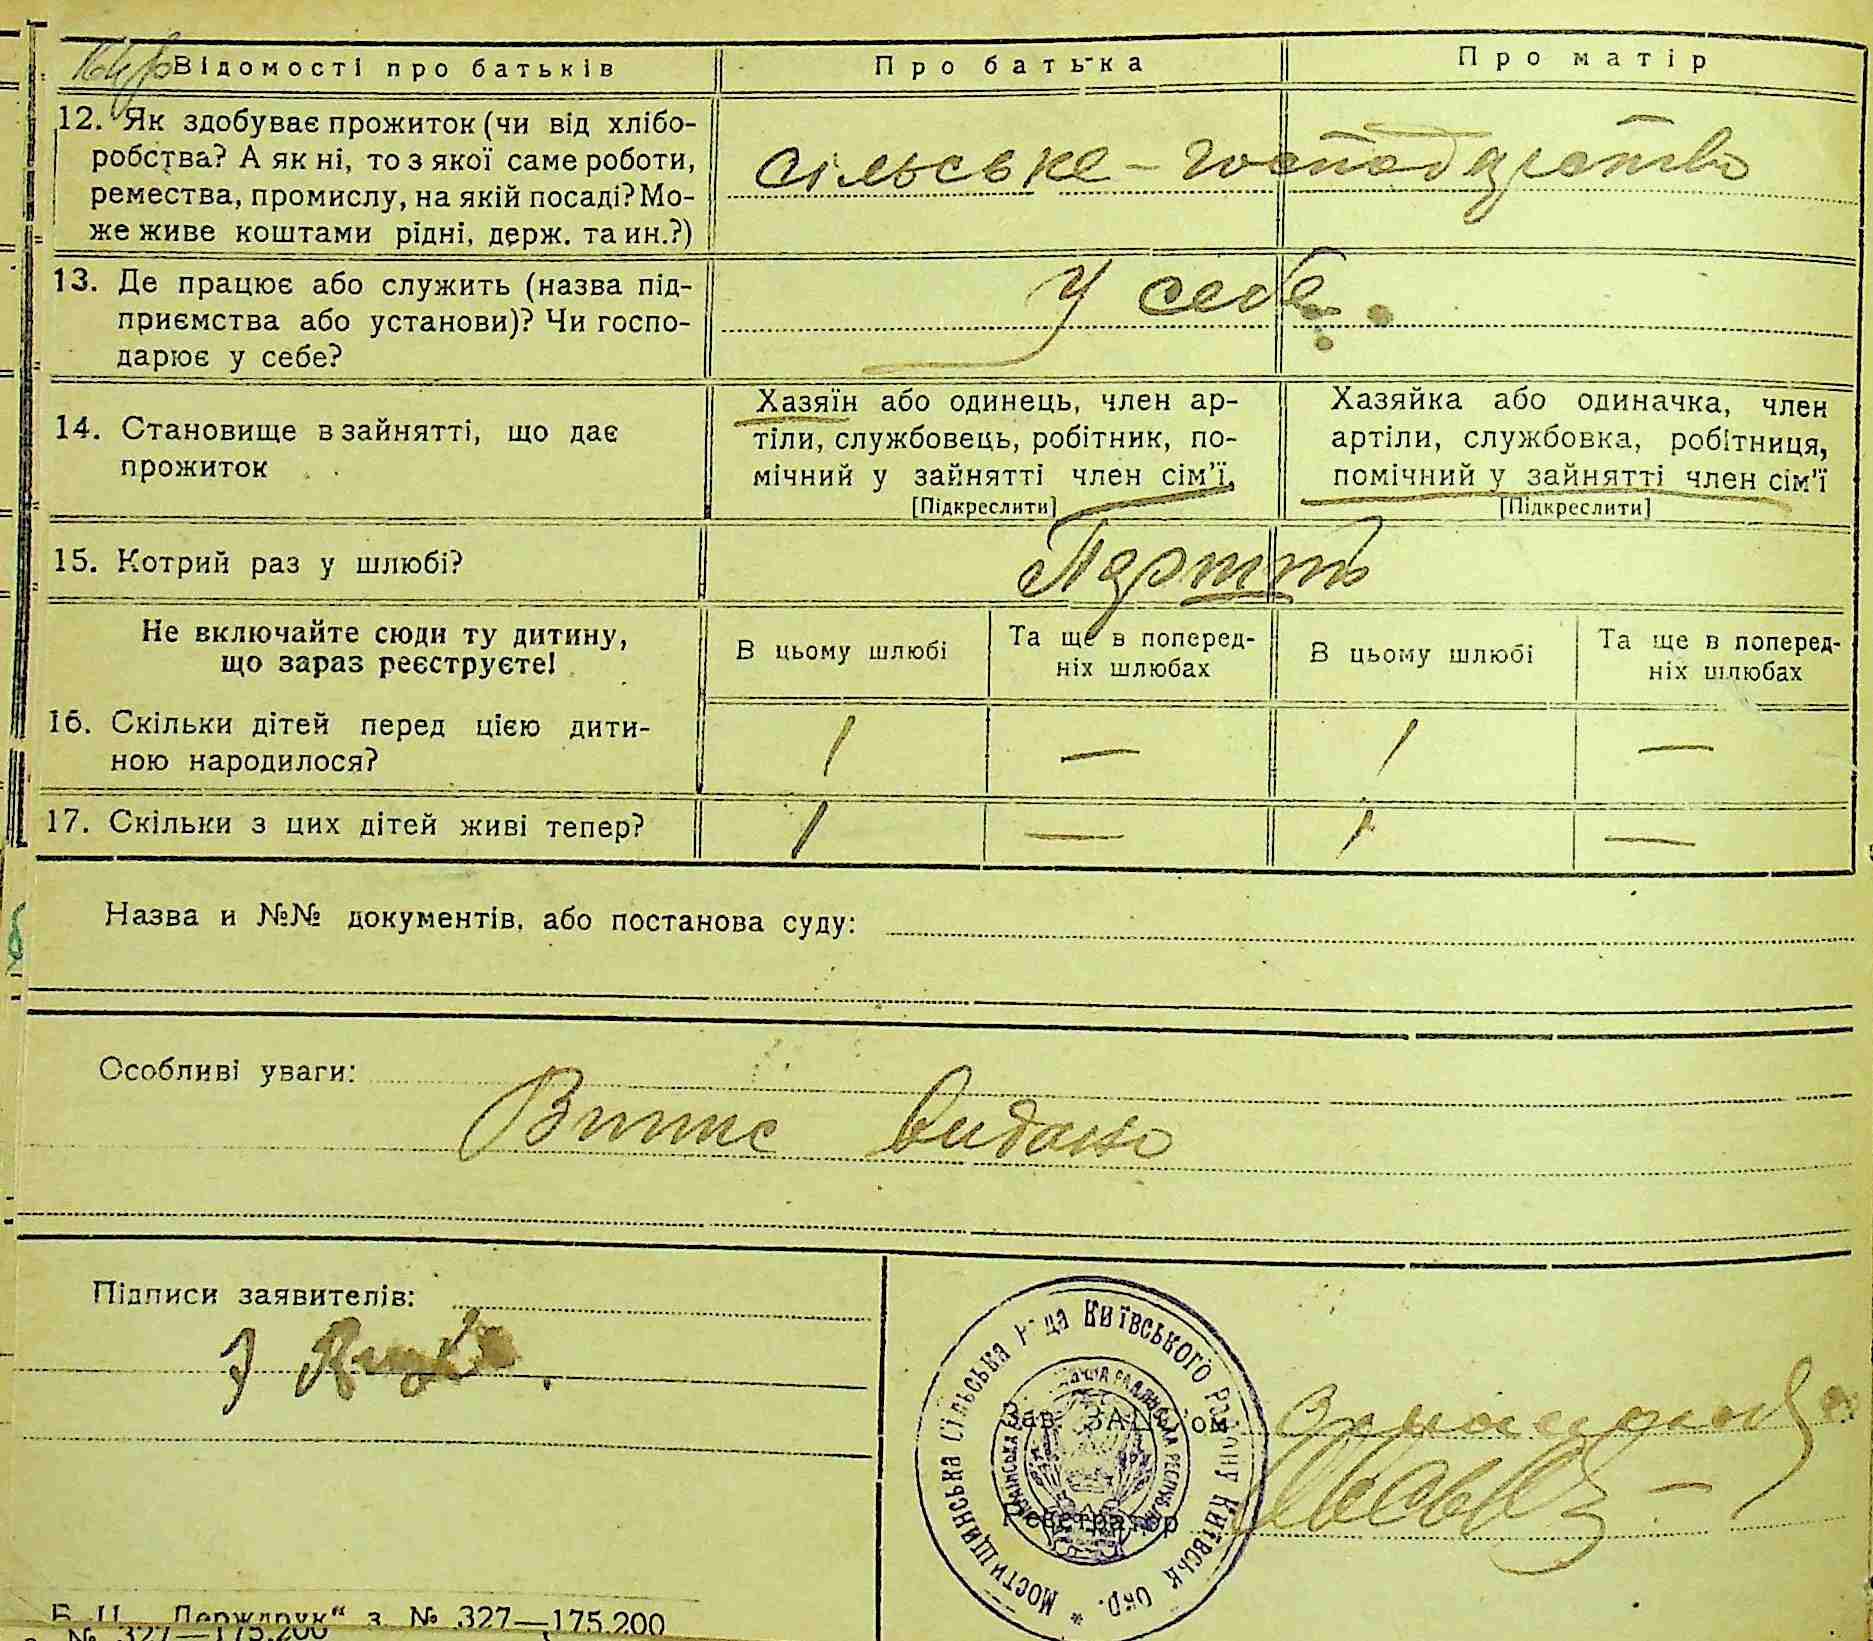 Відомості про батьків
Про батька
Про матір
12. Як здобуває прожиток (чи від хлібо-
робства? А як ні, то з якої саме роботи,
ремества, промислу, на якій посаді? Мо-
же живе коштами рідні, держ. та ин.?)
сільське - господарство
13. Де працює або служить (назва під-
приємства або установи)? Чи госпо-
дарює у себе?
у себе
14. Становище в зайнятті, що дає
прожиток
Хазяїн або одинець, член ар-
тіли, службовець, робітник, по-
мічний у зайнятті член сім'ї,
[Підкреслити]
Хазяйка або одиначка, член
артіли, службовка, робітниця,
помічний у зайнятті член сім'ї
[Підкреслити]
15. Котрий раз у шлюбі?
Не включайте сюди ту дитину,
що зараз реєструєте!
В цьому шлюбі
Та ще в поперед-
ніх шлюбах
В цьому шлюбі
Та ще в поперед-
ніх шлюбах
16. Скільки дітей перед цією дити-
ною народилося?
1 — 1 —
17. Скільки з цих дітей живі тепер?
1 — 1 —
Назва и №№ документів, або постанова суду:
Особливі уваги:
Випис видано
Підписи заявителів:
Мостищинська Сільська Рада Київського Району Київськ Окр.
Зав. ЗАГС'ом
Реєстратор
Б. Ц. „Держдрук“ з. № 327—175.200
№ 327—175.200